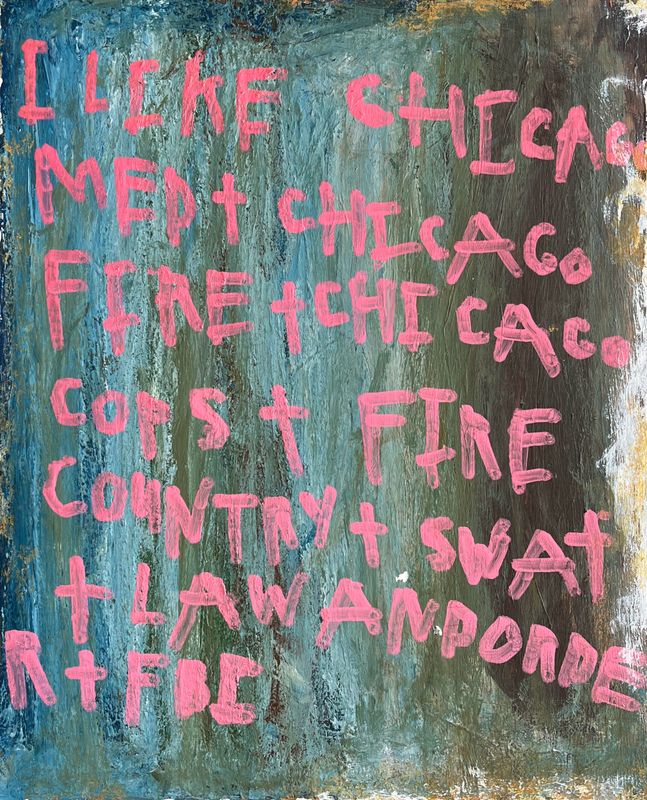 I LIKE CHICAGO
MED + CHICAGO
FIRE + CHICAGO
COPS + FIRE
COUNTRY + SWAT
+ LAW ANDORDE
R + FBI